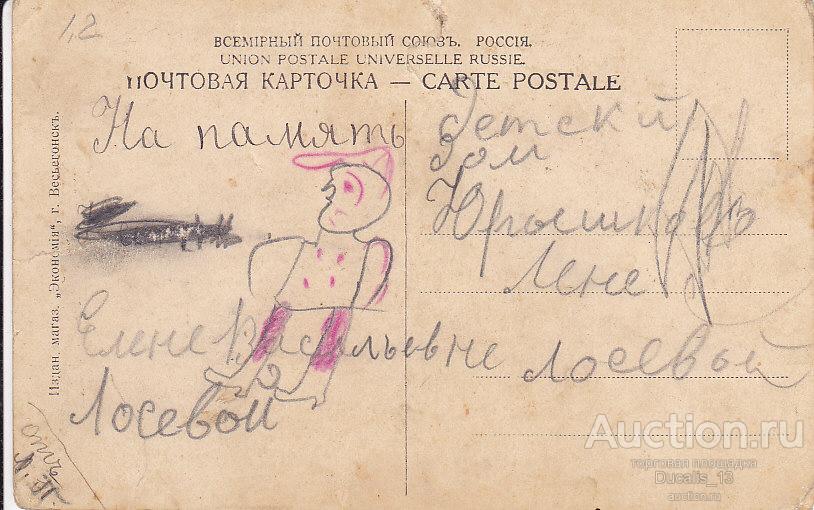 1,2
ВСЕМІРНЫЙ ПОЧТОВЫЙ СОЮЗЪ. РОССІЯ.
UNION POSTALE UNIVERSELLE RUSSIE.
ПОЧТОВАЯ КАРТОЧКА — CARTE POSTALE
Издан. магаз. „Экономія“, г. Весьегонскъ.
На память
Елене Васильевне
Лосевой
отъ
Детский
Дом
Лене
Лосевой
Auction.ru
торговая площадка
Ducalis_13
auction.ru